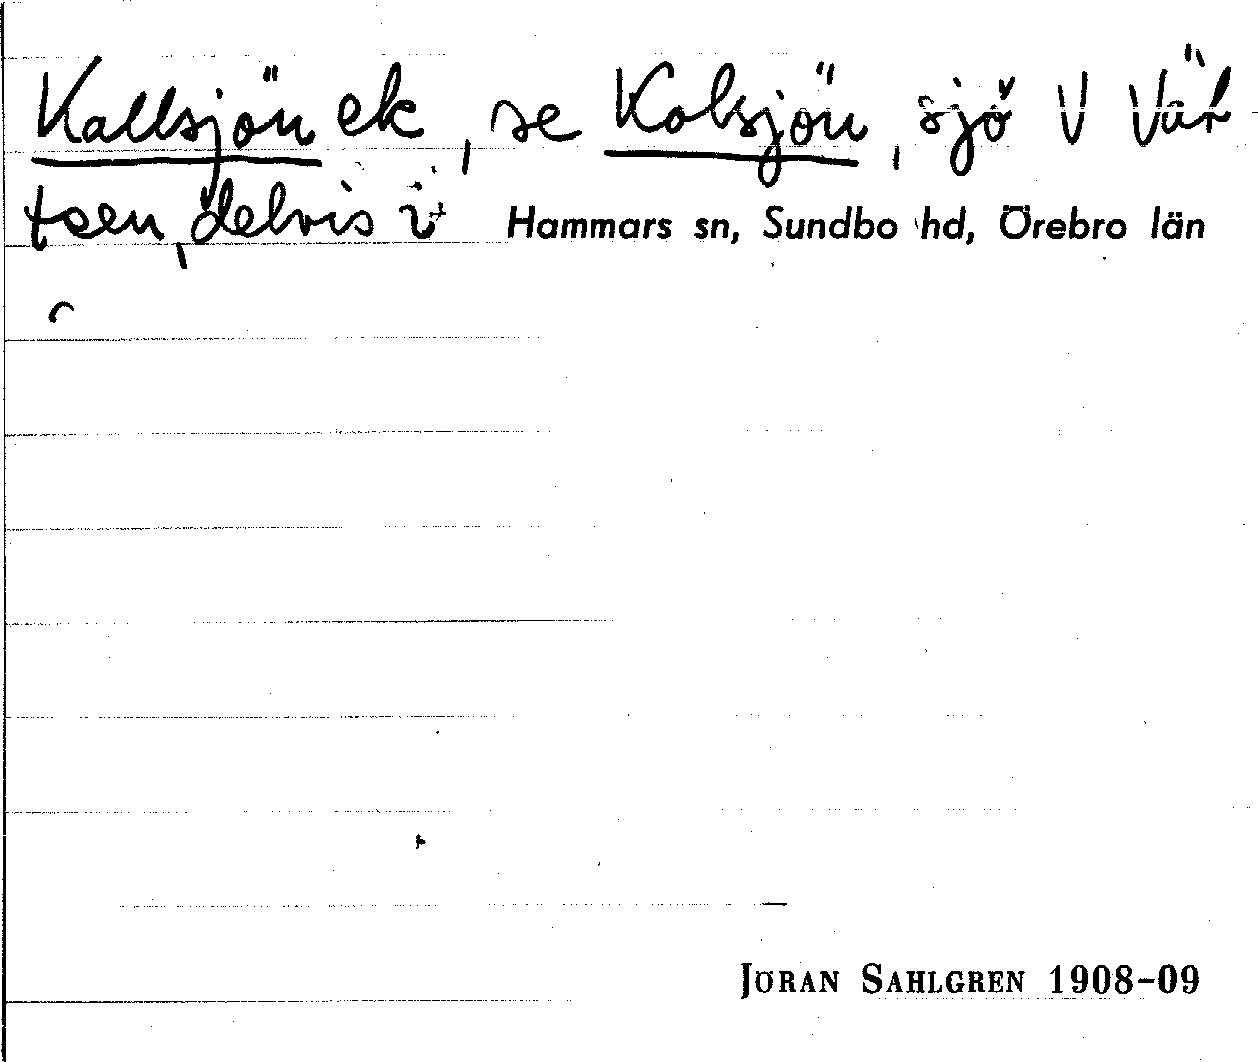 Kallsjön ek, se Kolsjön, sjö V Vät
tsen, delvis i Hammars sn, Sundbo hd, Örebro län
JÖRAN SAHLGREN 1908-09